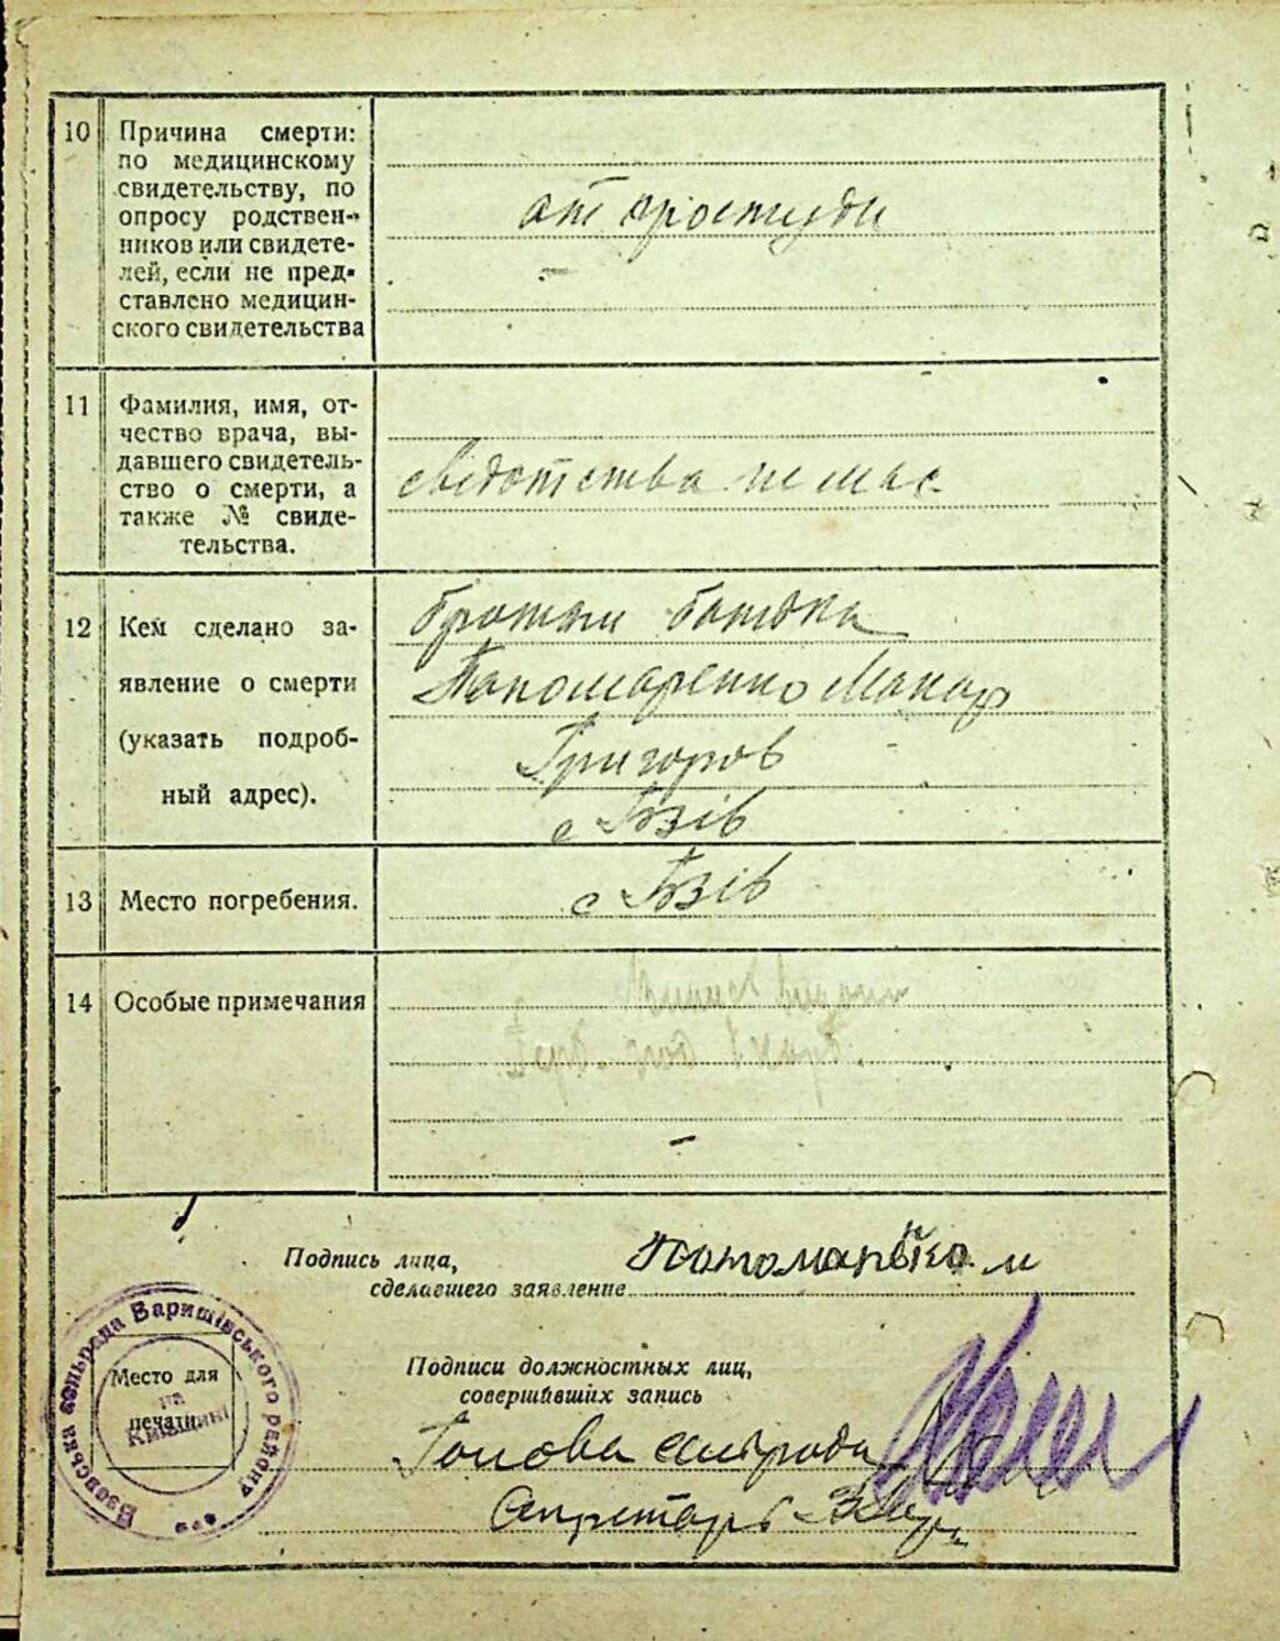 10 Причина смерти:
по медицинскому
свидетельству, по
опросу родствен-
ников или свидете-
лей, если не пред-
ставлено медицин-
ского свидетельства
от простуди
11 Фамилия, имя, от-
чество врача, вы-
давшего свидетель-
ство о смерти, а
также № свиде-
тельства.
свідотства немає
12 Кем сделано за-
явление о смерти
(указать подроб-
ный адрес).
братом батька
Пономаренко Макар
Григоров
с Бзів
13 Место погребения.
с Бзів
14 Особые примечания
Подпись лица,
сделавшего заявление
Подписи должностных лиц,
совершивших запись
Голова сільради
Секретарь
Место для
печати
Бзовська сільрада Баришівського району
на
Київщині